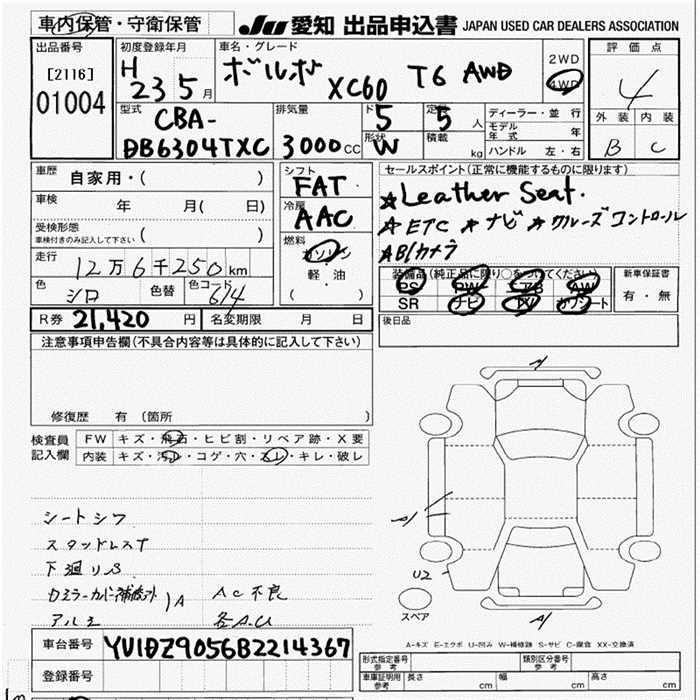 車内保管・守衛保管
JU 愛知 出品申込書 JAPAN USED CAR DEALERS ASSOCIATION
出品番号
[2116]
01004
初度登録年月
H 23 5月
車名・グレード
ボルボ XC60 T6 AWD
2WD
4WD
評価点
4
外装 内装
B C
型式
CBA-
DB6304TXC
排気量
3000cc
ドア
5
定員
5人
形状
W
積載
kg
ディーラー・並行
モデル年式 年
ハンドル 左・右
車歴
自家用・( )
車検 年 月( 日)
受検形態
車検付きのみ記入して下さい ( )
走行
12万6千250km
色
シロ
色替
色コード
614
シフト
FAT
冷房
AAC
燃料
ガソリン
軽・油
( )
セールスポイント(正常に機能するものに限ります)
★Leather Seat.
★ETC ★ナビ ★クルーズコントロール
★B/カメラ
装備品(純正品に限り○をつけてください)
PS PW エアB AW
SR ナビ TV カワシート
新車保証書
有・無
R券 21,420円
名変期限 月 日
後日品
注意事項申告欄(不具合内容等は具体的に記入して下さい)
修復歴 有(箇所 )
検査員
記入欄
FW キズ・飛石・ヒビ割・リペア跡・X要
内装 キズ・汚レ・コゲ・穴・スレ・キレ・破レ
シートシワ
スタッドレスT
下廻りS
AC不良
各A.U
A
A
A
U2
スペア
A-キズ E-エクボ U-凹み W-補修跡 S-サビ C-腐食 XX-交換済
車台番号
YV1DZ9056B2214367
登録番号
形式指定番号
参考
類別区分番号
参考
車庫証明用
参考
長さ cm 幅 cm 高さ cm